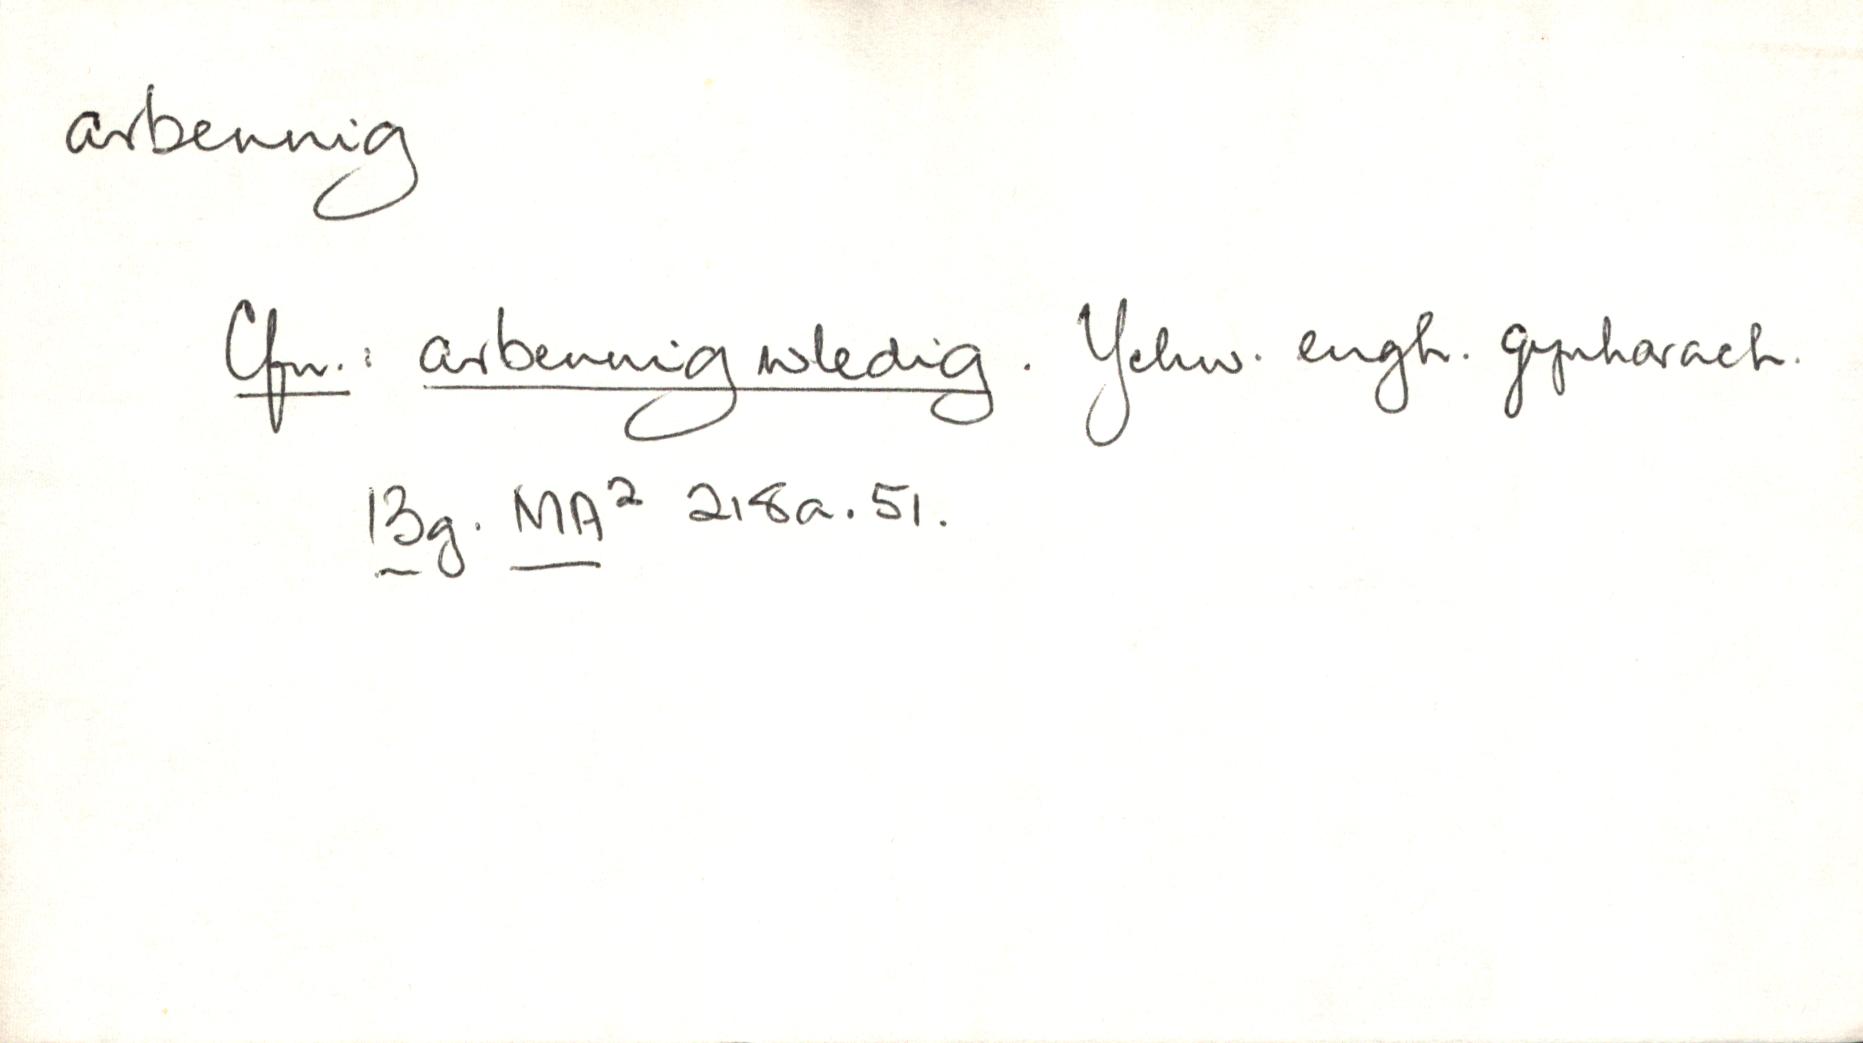 arbennig
Cfn.: arbennig wledig. Ychw. engh. gynharach.
13g. MA² 218a. 51.